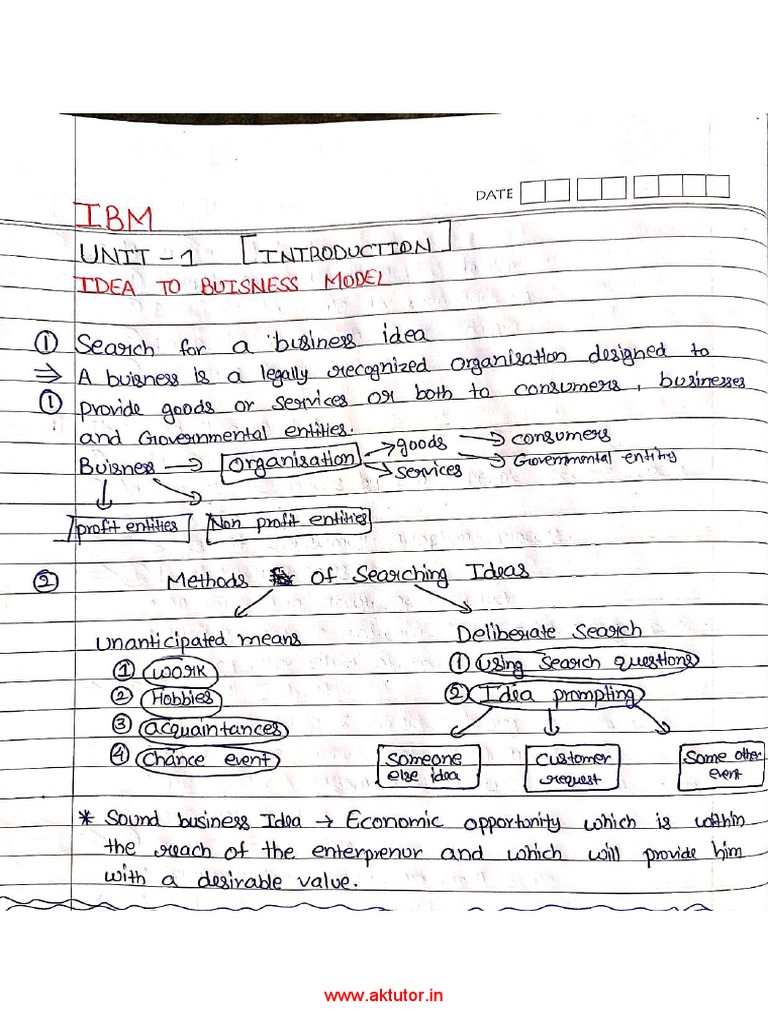 DATE
IBM
UNIT - 1 [INTRODUCTION]
IDEA TO BUISNESS MODEL
① Search for a business idea
⇒ A buisness is a legally recognized organisation designed to
① provide goods or services or both to consumers, businesses
and Governmental entities.
Buisness → Organisation → goods → consumers
→ services → Governmental entity
profit entities Non profit entities
② Methods of Searching Ideas
Unanticipated means Deliberate Search
① work ① Using Search questions
② Hobbies ② Idea prompting
③ acquaintances
④ Chance event Someone else idea Customer request Some other event
* Sound business Idea → Economic opportunity which is within
the reach of the enterprenur and which will provide him
with a desirable value.
www.aktutor.in